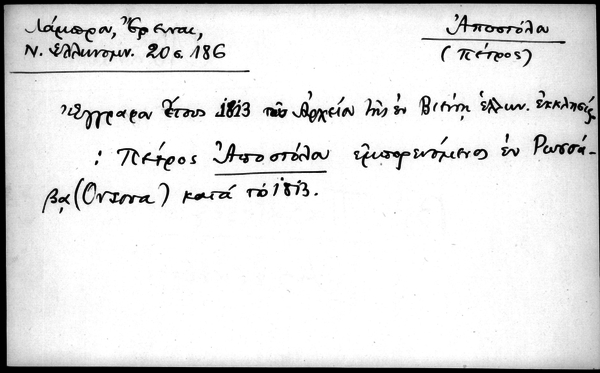 Λάμπρου, Ἔρευναι,
Ν. Ἑλληνομν. 20 σ. 186
Ἀποστόλα
(Πέτρος)
Ἔγγραφον ἔτους 1813 τοῦ Ἀρχείου τῆς ἐν Βιέννῃ ἑλλην. ἐκκλησίας
: Πέτρος Ἀποστόλα ἐμπορευόμενος ἐν Ρωσσά-
βᾳ (Ορσοβα) κατά τό 1813.